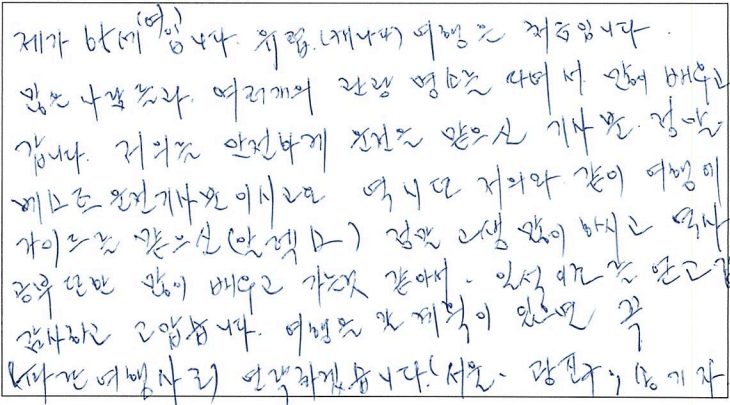 제가 밧세(여)입니다. 유럽.(캐나다) 여행은 처음입니다.
많은 나라들과. 여러개의 관광 명소를 다녀서 많이 배우고
갑니다. 저희를 안전하게 운전을 맡으신 기사분. 정말
베스트 운전기사분이시고요 역시도 저희와 같이 여행에
가이드를 맡으신(알렉스) 정말 고생 많이 하시고 역사
공부 또한 많이 배우고 가는것 같아서. 일석이조를 얻고 갑
감사하고 고맙습니다. 여행을 또 계획이 있으면 꼭
여행사로 연락하겠습니다.(서울.